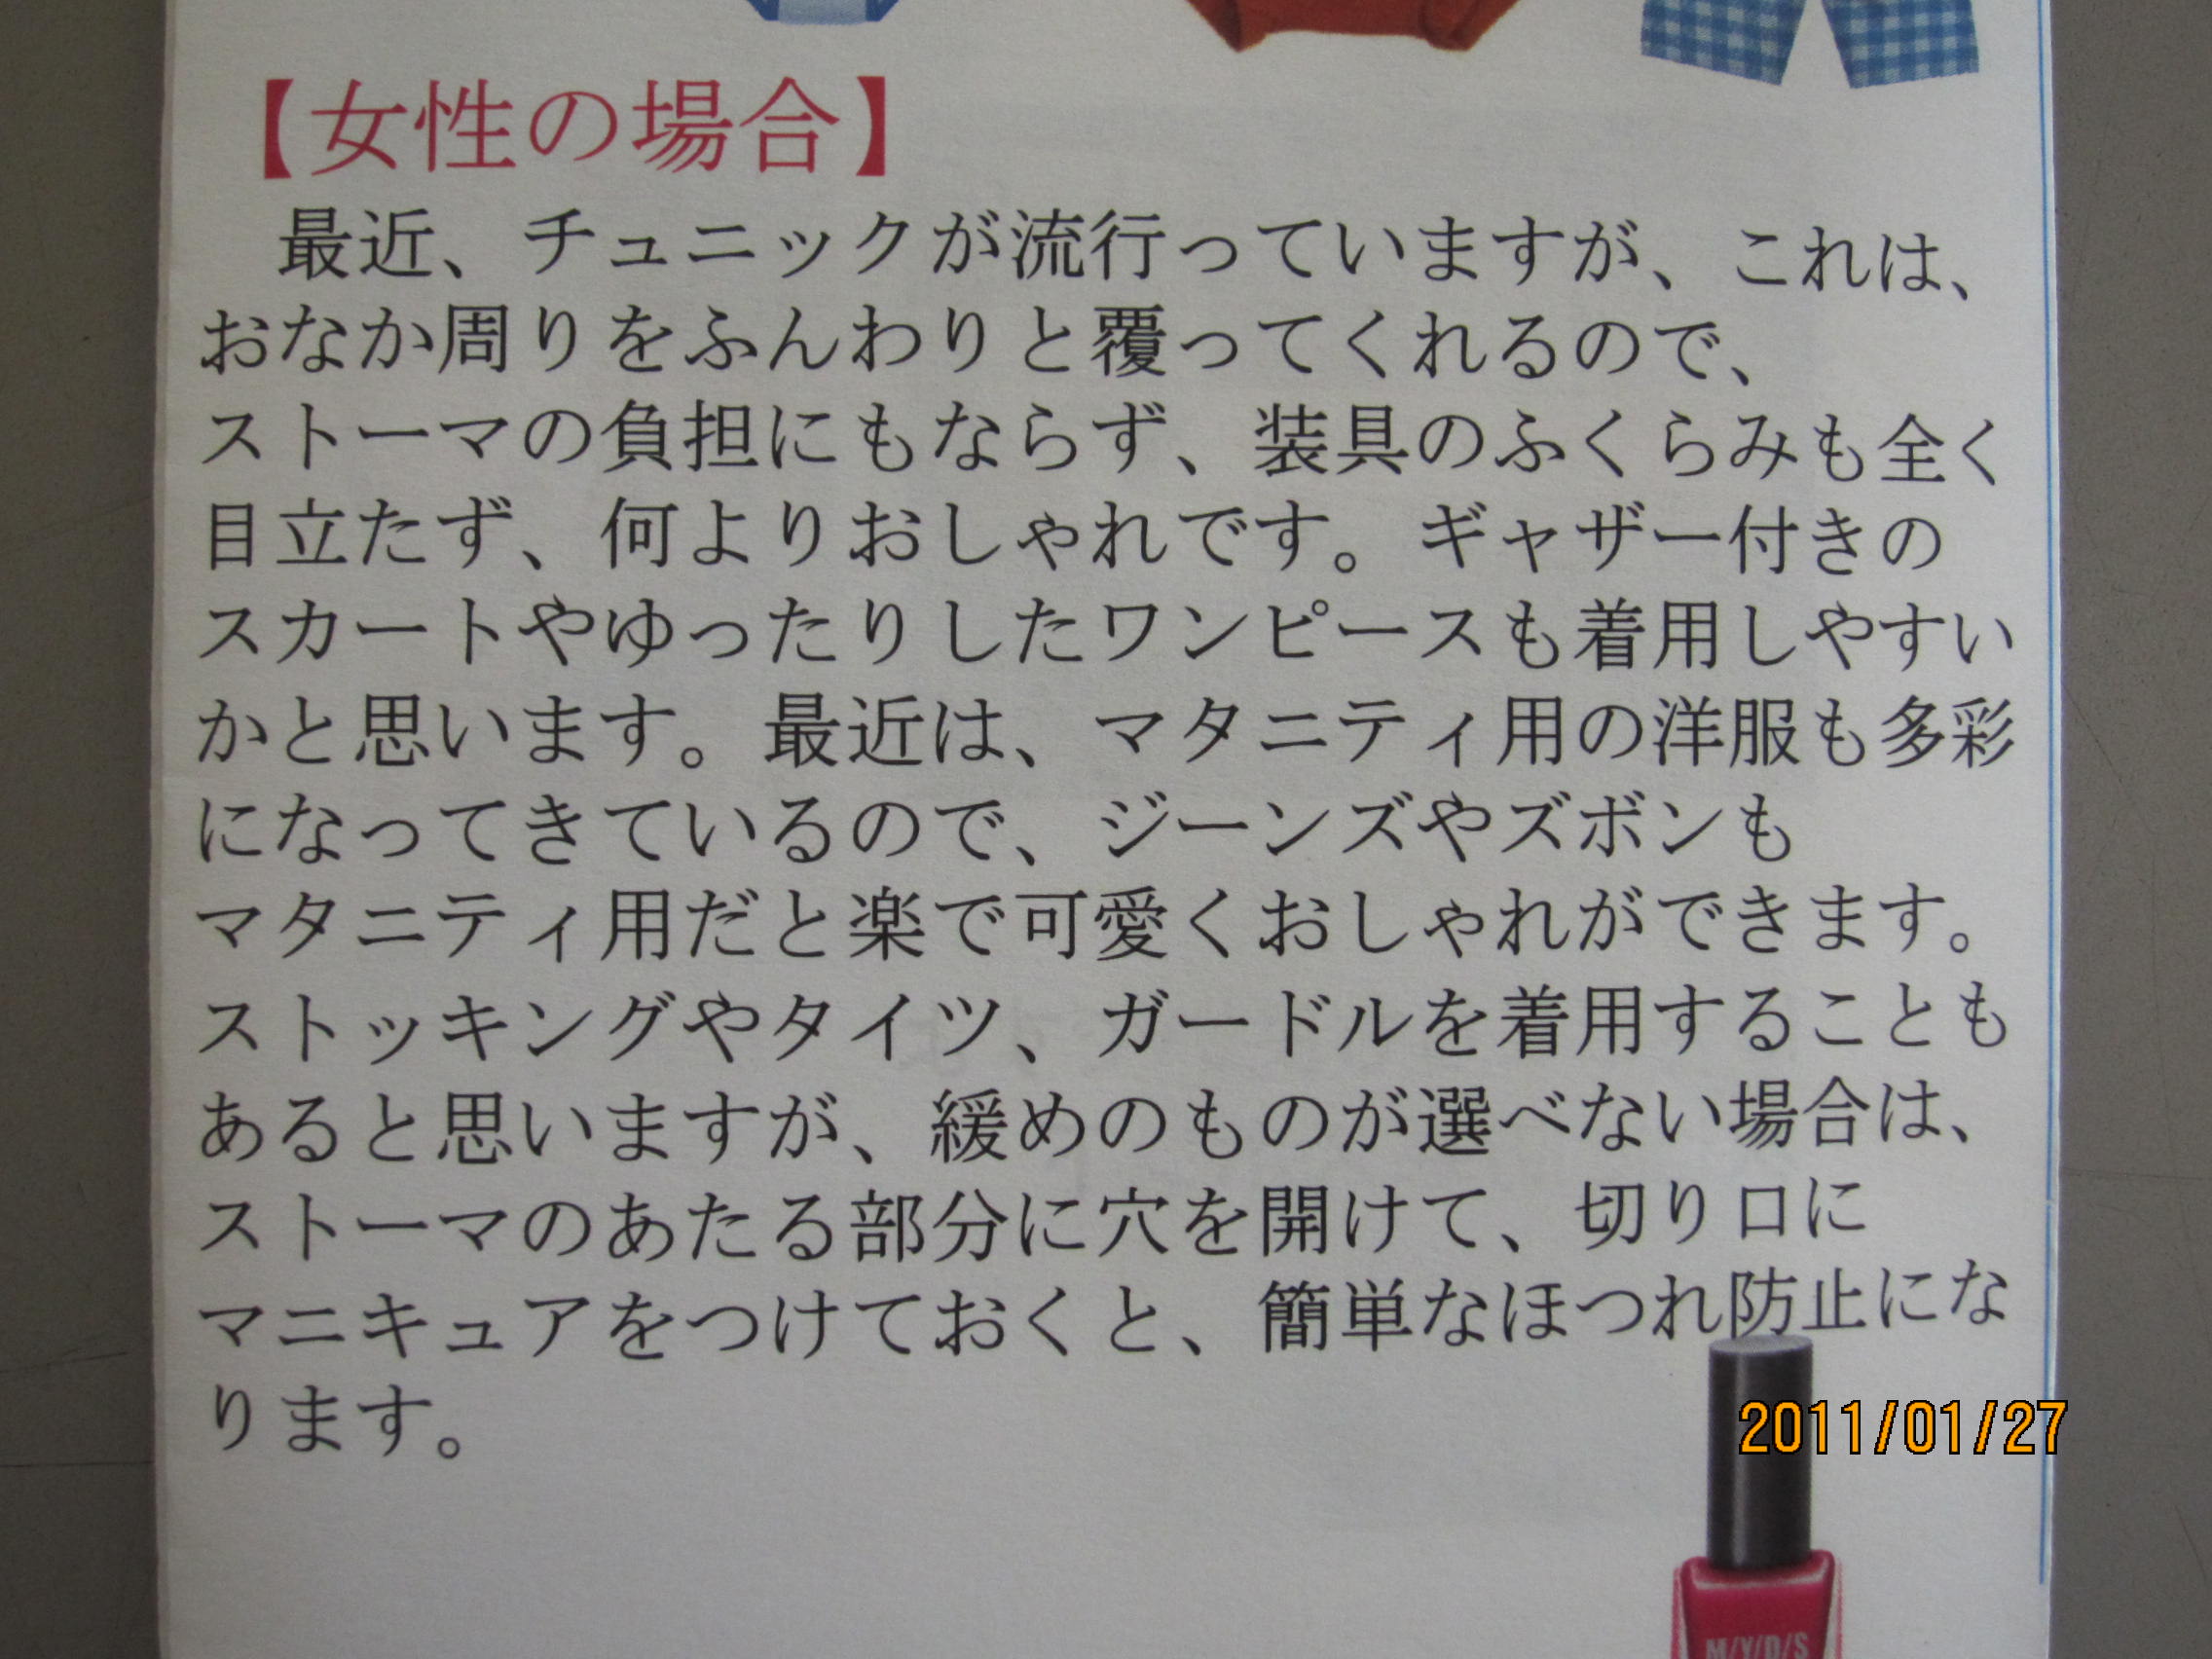 【女性の場合】
最近、チュニックが流行っていますが、これは、
おなか周りをふんわりと覆ってくれるので、
ストーマの負担にもならず、装具のふくらみも全く
目立たず、何よりおしゃれです。ギャザー付きの
スカートやゆったりしたワンピースも着用しやすい
かと思います。最近は、マタニティ用の洋服も多彩
になってきているので、ジーンズやズボンも
マタニティ用だと楽で可愛くおしゃれができます。
ストッキングやタイツ、ガードルを着用することも
あると思いますが、緩めのものが選べない場合は、
ストーマのあたる部分に穴を開けて、切り口に
マニキュアをつけておくと、簡単なほつれ防止にな
ります。
2011/01/27
M/Y/D/S